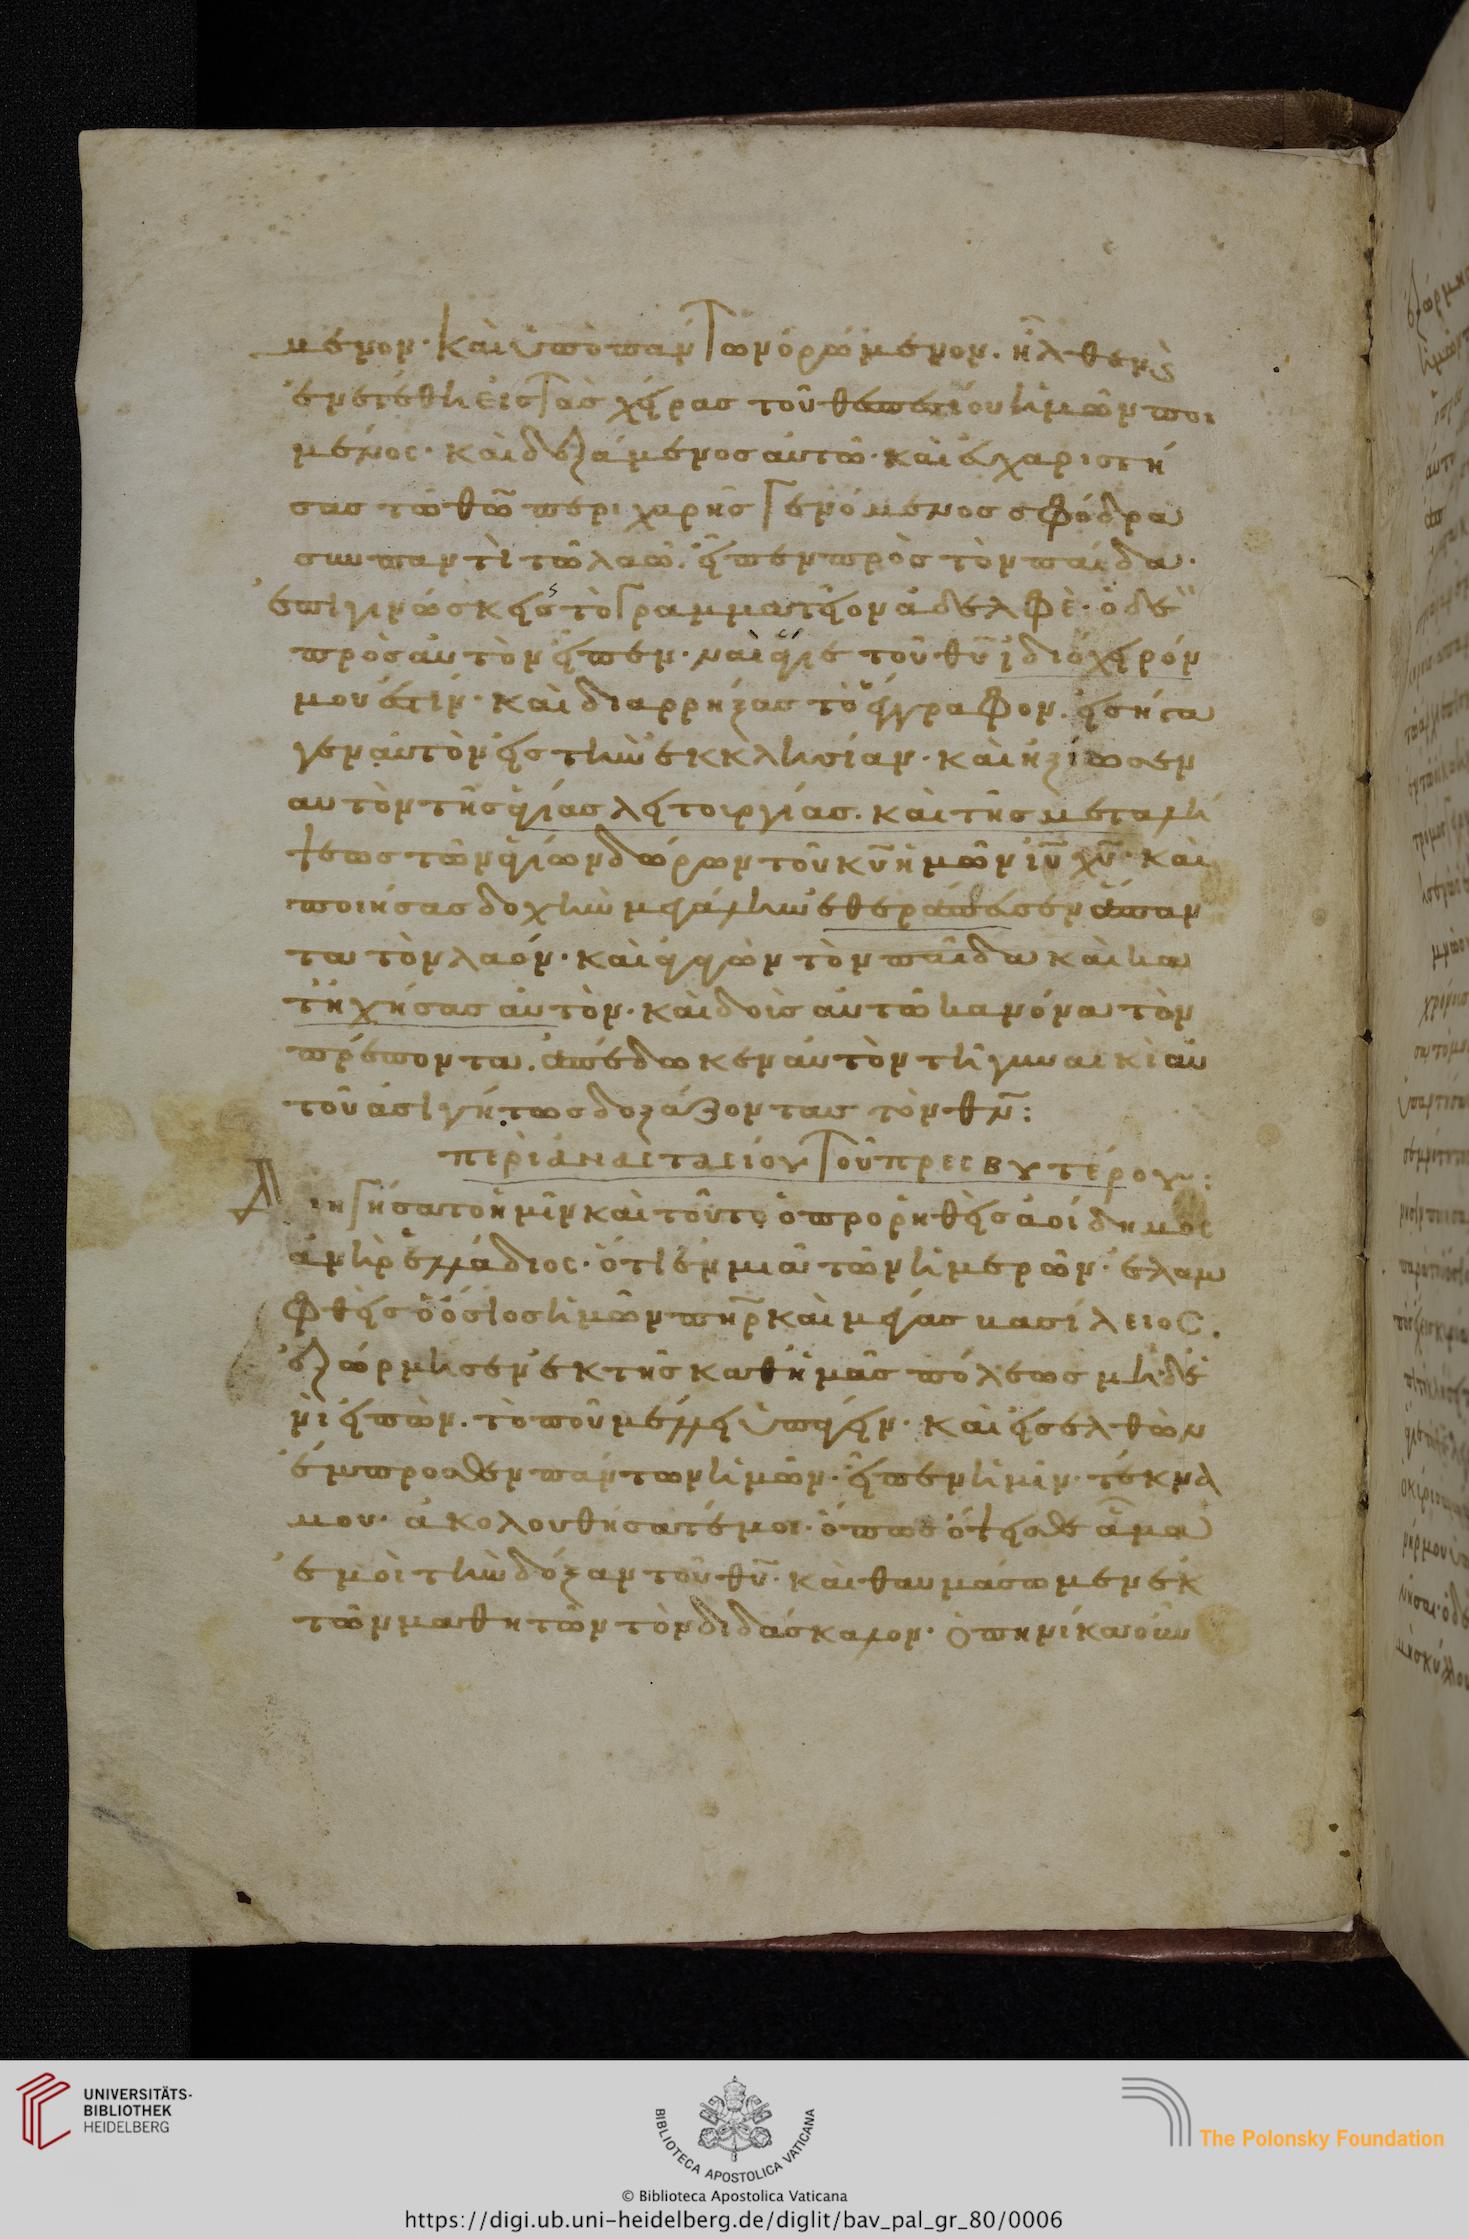 μένον· καὶ ὑπὸ πάντων ὁρώμενον. ἦλθεν καὶ
ἐνετέθη εἰς τὰς χεῖρας τοῦ θεσπεσίου ἡμῶν ποι
μένος· καὶ δεξάμενος αὐτῶ· καὶ εὐχαριστή
σας τῶ θῶ περιχαρὴς γενόμενος σφόδρα
συν παντὶ τῶ λαῶ. εἶπεν πρὸς τὸν παίδα·
ἐπιγινώσκεις τὸ γραμματεῖον ἀδελφὲ· ὁ δὲ
πρὸς αὐτὸν εἶπεν· ναὶ ἅγιε τοῦ θῦ ἰδιόχειρόν
μου ἐστίν· καὶ διαρρήξας τὸ ἔγγραφον. εἰσήγα
γεν αὐτὸν εἰς τὴν ἐκκλησίαν· καὶ ἠξίωσεν
αυτὸν τῆς ἁγίας λειτουργίας. καὶ τῆς μεταλή
ψεως τῶν ἁγίων δώρων τοῦ κῦ ἡμῶν ιῦ χῦ· καὶ
ποιήσας δοχὴν μεγάλην ἐθεράπευσεν ἅπαν
τα τὸν λαόν· καὶ ἀγαγὼν τὸν παῖδα καὶ κα
τηχήσας αὐτὸν· καὶ δοὺς αὐτῶ κανόνα τὸν
πρέποντα. ἀπέδωκεν αὐτὸν τῆ γυναικὶ αὐ
τοῦ ἀσιγήτως δοξάζοντας τὸν θν:
περὶ ἀναστασίου τοῦ πρεσβυτέρου:
Διηγήσατο ἡμῖν καὶ τοῦτο ὁ προρηθεὶς ἀοίδημος
ἀνὴρ ἑλλάδιος· ὅτι ἐν μιᾶ τῶν ἡμερῶν· ἐλαμ
φθεὶς ὁ ὅσιος ἡμῶν πηρ καὶ μέγας βασίλειος.
ἐξώρμησεν ἐκ τῆς καθ ἡμᾶς πόλεως μηδε
νὶ εἰπὼν. τὸ ποῦ μέλλει ὑπάγειν· καὶ εἰσελθὼν
ἔμπροσθεν πάντων ἡμῶν· εἶπεν ἡμῖν· τέκνα
μου· ἀκολουθήσατέ μοι· ὅπως ὄψεσθε ἅμα
ἐμοὶ τὴν δόξαν τοῦ θῦ· καὶ θαυμάσωμεν ἐκ
τῶν μαθητῶν τὸν διδάσκαλον· ὁπηνίκα οὖν
UNIVERSITÄTS-
BIBLIOTHEK
HEIDELBERG
BIBLIOTECA APOSTOLICA VATICANA
The Polonsky Foundation
© Biblioteca Apostolica Vaticana
https://digi.ub.uni-heidelberg.de/diglit/bav_pal_gr_80/0006